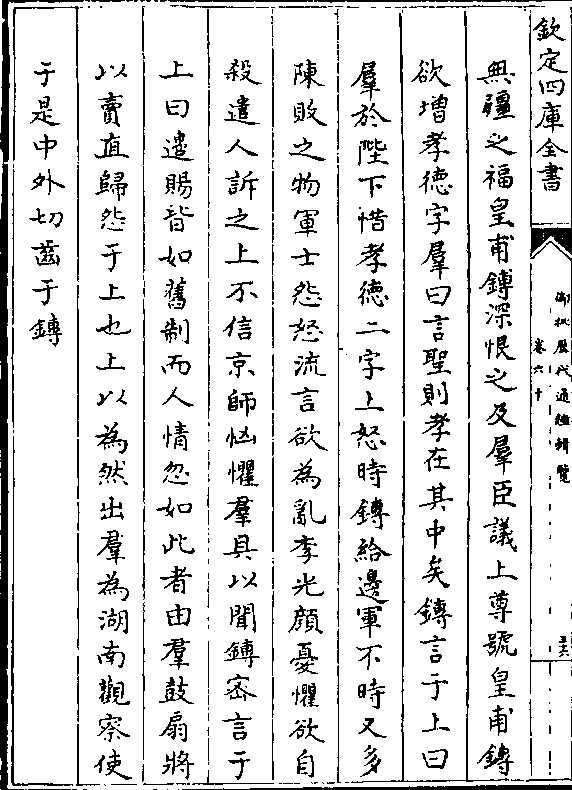 欽定四庫全書
御批歷代通鑑輯覽
卷六十
無疆之福皇甫鎛深恨之及羣臣議上尊號皇甫鎛
欲增孝德字羣曰言聖則孝在其中矣鎛言于上曰
羣於陛下惜孝德二字上怒時鎛給邊軍不時又多
陳敗之物軍士怨怒流言欲為亂李光顔憂懼欲自
殺遣人訴之上不信京師恟懼羣具以聞鎛宻言于
上曰邉賜皆如舊制而人情忽如此者由羣鼓扇將
以賣直歸怨于上也上以為然出羣為湖南觀察使
于是中外切齒于鎛